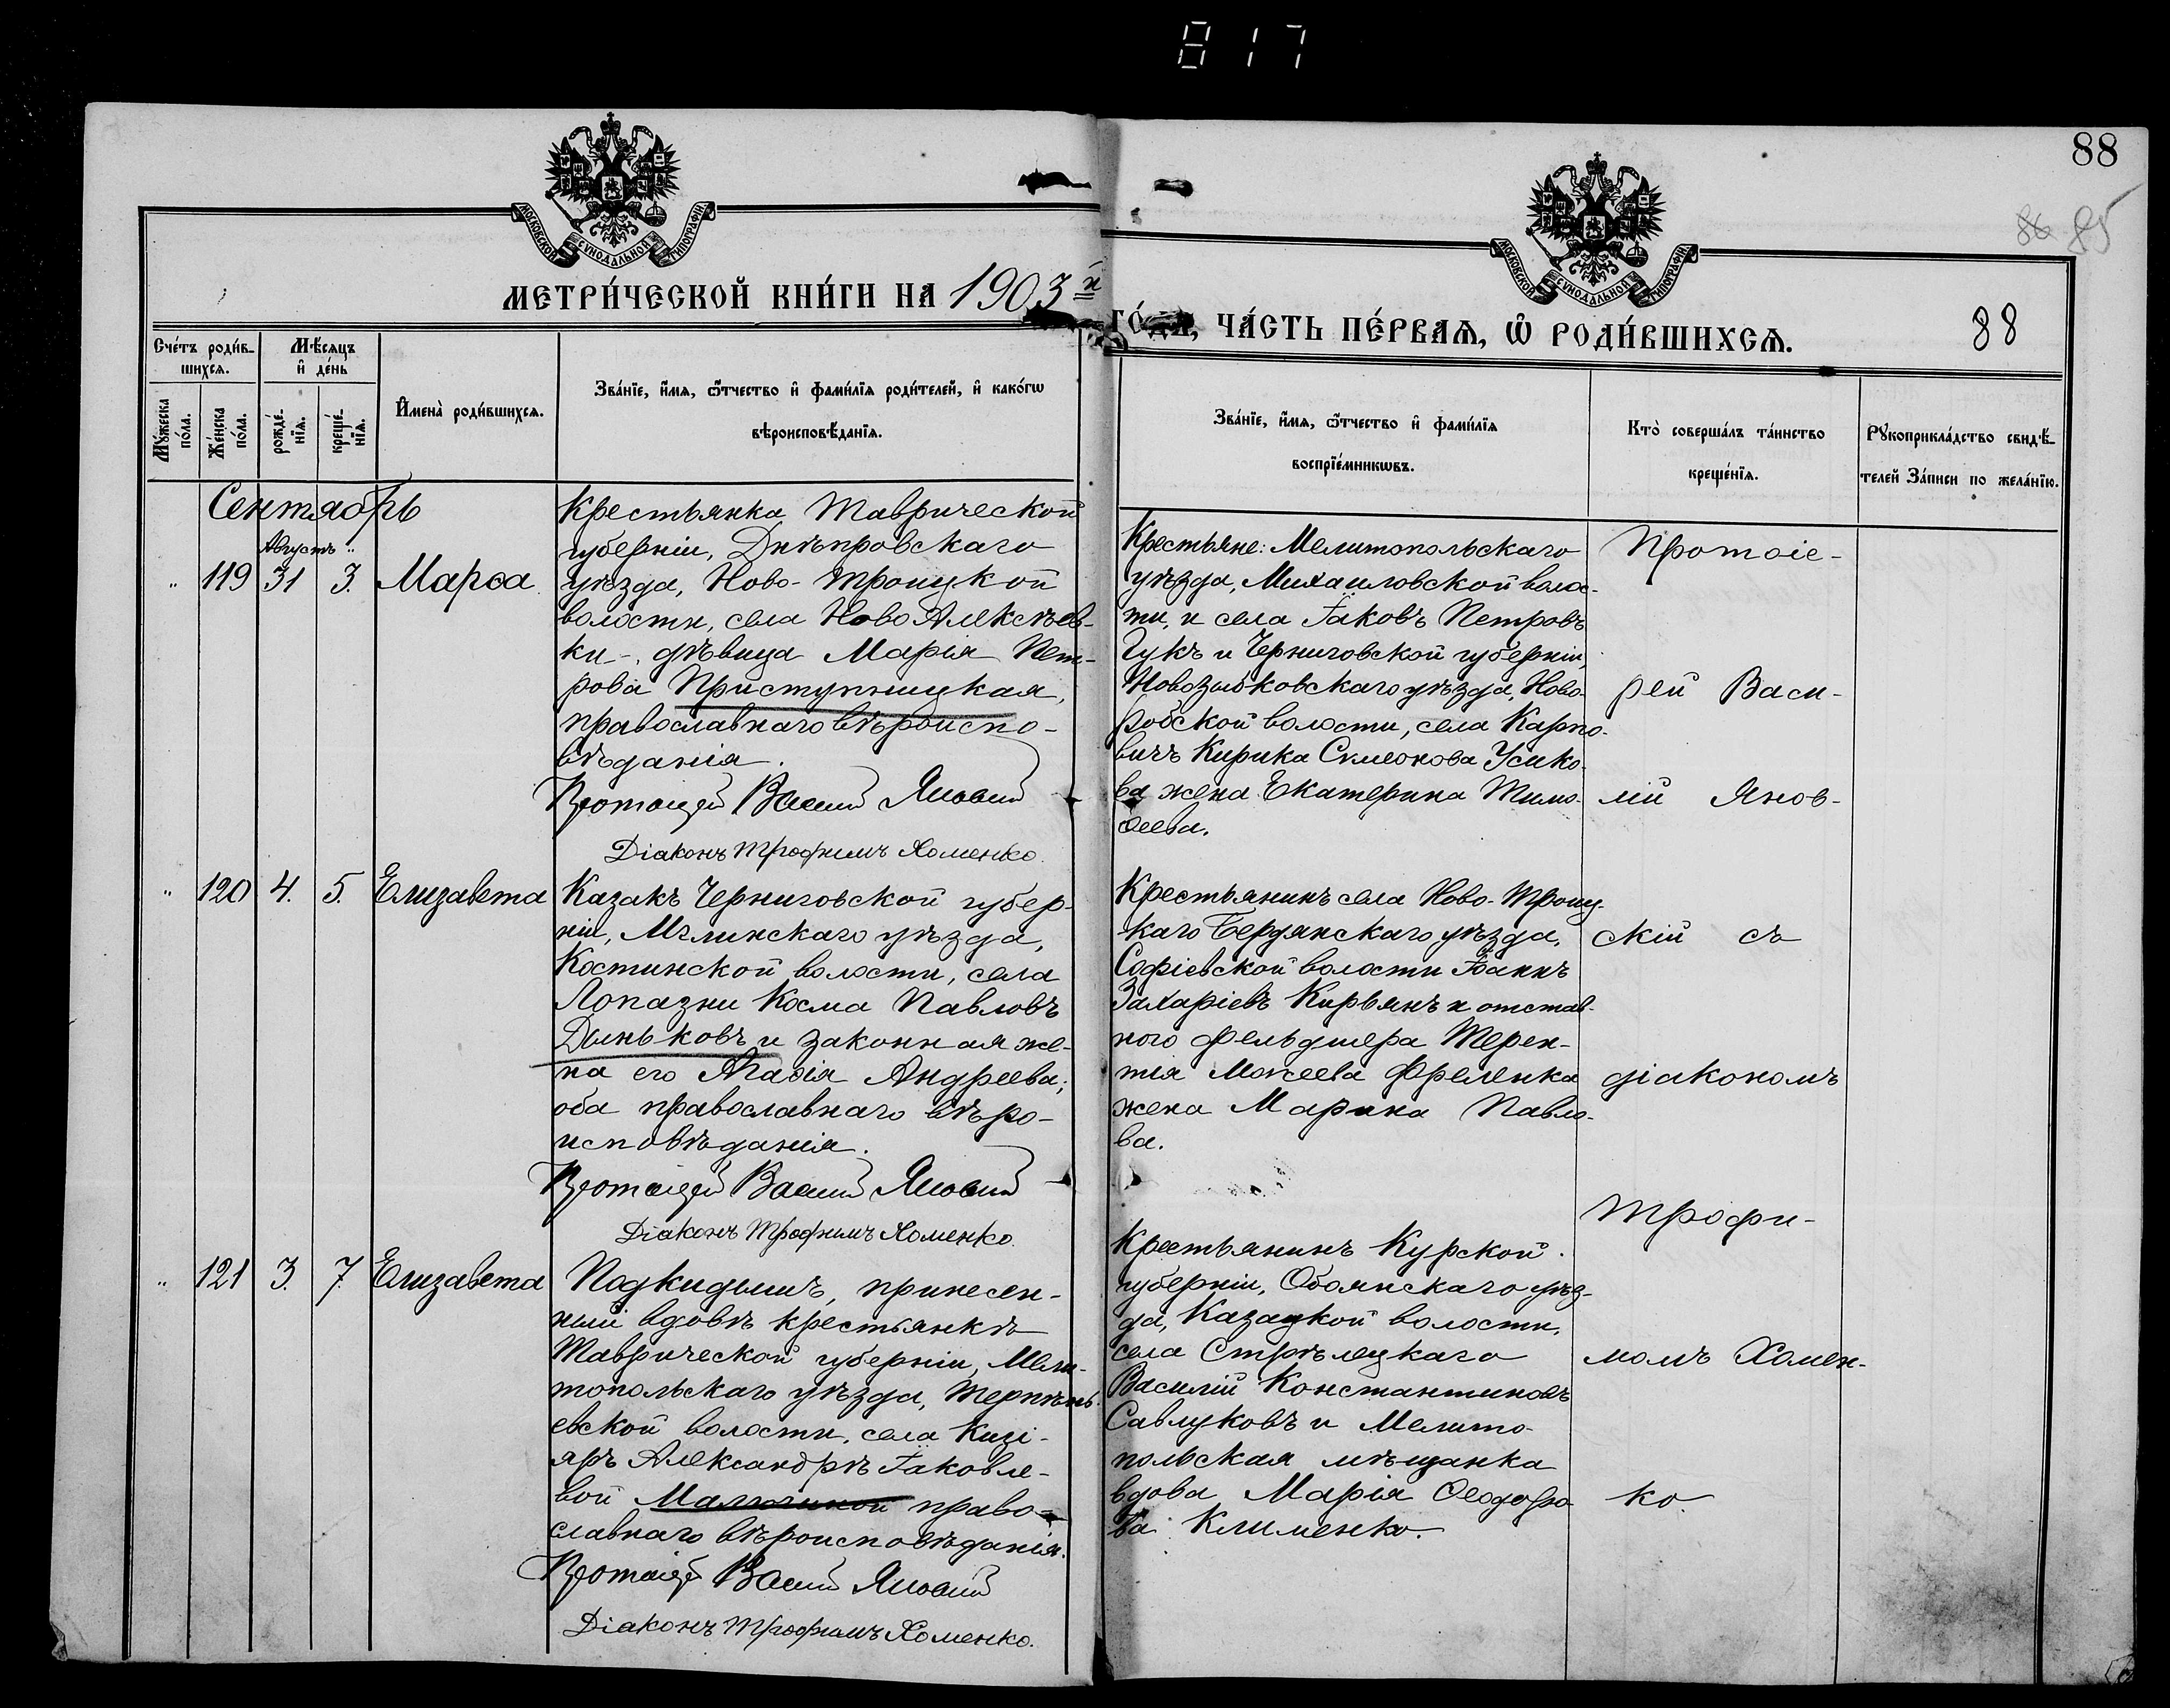 817
88
86 85
МОСКОВСКОЙ СУНОДАЛЬНОЙ ТИПОГРАФІИ
МОСКОВСКОЙ СУНОДАЛЬНОЙ ТИПОГРАФІИ
МЕТРИ́ЧЕСКОЙ КНИ́ГИ НА 1903й
ГО́ДЪ, ЧА́СТЬ ПЕ́РВАѦ, Ѽ РОДИ́ВШИХСѦ.
88
Сче́тъ роди́в-
шихсѧ.
Мѣ́сѧцъ
и҆ де́нь
Мꙋ́жеска
по́ла.
Же́нска
по́ла.
рожде́-
нїѧ.
креще́-
нїѧ.
И҆мена̀ роди́вшихсѧ.
Зва́нїе, и҆́мѧ, ѻ҆́тчество и҆ фами́лїѧ роди́телей, и҆ како́гѡ
вѣроисповѣ́данїѧ.
Зва́нїе, и҆́мѧ, ѻ҆́тчество и҆ фами́лїѧ
воспрїе́мникѡвъ.
Кто̀ соверша́лъ та́инство
креще́нїѧ.
Рꙋкоприкла́дство свидѣ́-
телей За́писи по жела́нїю.
Сентябрь
Августъ
„ 119 31 3. Марѳа
Крестьянка Таврической
губерніи, Днѣпровскаго
уѣзда, Ново-Троицкой
волости, села Ново Алексѣев-
ки -, дѣвица Марія Пет-
рова Приступницкая,
православнаго вѣроиспо-
вѣданія.
Протоіерей Василій Яновскій
Діаконъ Трофимъ Хоменко.
Крестьяне: Мелитопольскаго
уѣзда, Михаиловской волос-
ти, и села Іаковъ Петровъ
Гукъ и Черниговской губерніи,
Новозыбковскаго уѣзда, Ново-
робской волости, села Карпо-
вичъ Кирика Симеонова Усико-
ва жена Екатерина Тимо-
ѳеева.
Протоіе-
рей Васи-
лій Янов-
„ 120 4. 5. Елизавета
Казакъ Черниговской губер-
ніи, Мглинскаго уѣзда,
Костинской волости, села
Лопазни Косма Павловъ
Дыньковъ и законная же-
на его Агаѳія Андреева;
оба православнаго вѣро-
исповѣданія.
Протоіерей Василій Яновскій
Діаконъ Трофимъ Хоменко.
Крестьянинъ села Ново-Троиц-
каго Бердянскаго уѣзда,
Софіевской волости Іоаннъ
Захаріевъ Кирьянъ и отстав-
ного фельдшера Терен-
тія Мокеева Фреленка
жена Марина Павло-
ва.
скій съ
діакономъ
Трофи-
„ 121 3. 7. Елизавета
Подкидышъ, принесен-
ный вдовѣ крестьянкѣ
Таврической губерніи, Мели-
топольскаго уѣзда, Терпѣнь-
евской волости, села Кизі-
яръ Александрѣ Іаковле-
вой право-
славнаго вѣроисповѣданія.
Протоіерей Василій Яновскій
Діаконъ Трофимъ Хоменко.
Крестьянинъ Курской
губерніи, Обоянскаго уѣз-
да, Казацкой волости,
села Стрѣлецкаго
Василій Константиновъ
Савлуковъ и Мелито-
польская мѣщанка
вдова Марія Ѳеодоро-
ва Клименко.
момъ Хомен-
ко.